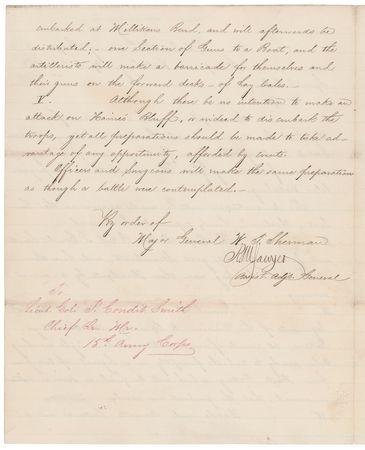 embarked at Millikens Bend, and will afterwards be
distributed; - one Section of Guns to a Boat, and the
artillerists will make a barricade for themselves and
their guns on the forward decks - of hay bales. -
V. Although there be no intention to make an
attack on Haines' Bluff, or indeed to disembark the
troops, yet all preparations should be made to take ad-
vantage of any opportunity, afforded by events.
Officers and Surgeons will make the same preparation
as though a battle were contemplated. -
By order of
Major General W. T. Sherman
R M Sawyer
Asst. Adjt. General
To
Lieut Col: J. Condit Smith
Chief Qr. Mr.
15th Army Corps